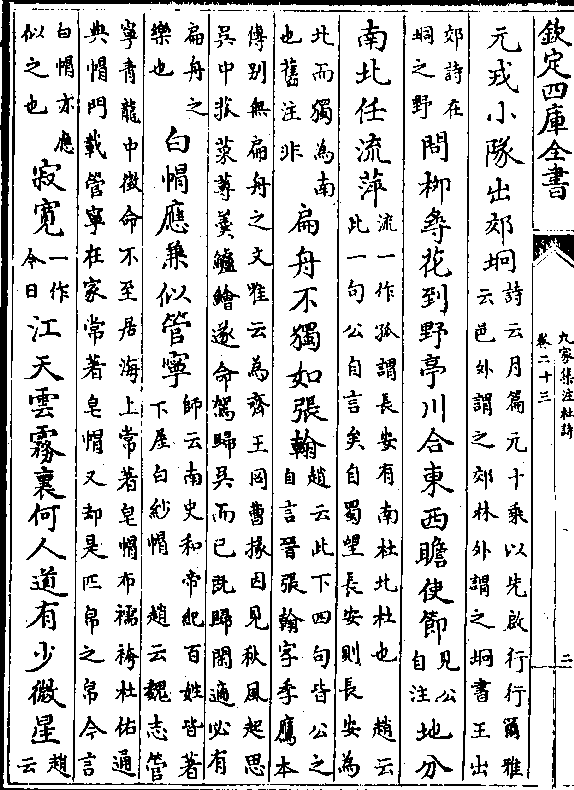 欽定四庫全書
九家集注杜詩
卷二十三
二
元戎小隊出郊坰詩云月篇元十乘以先啟行行爾雅云邑外謂之郊林外謂之坰書王出
郊詩在坰之野問柳尋花到野亭川合東西瞻使節見公自注地分
南北任流萍流一作孤謂長安有南杜北杜也 趙云此一句公自言矣自蜀望長安則長安為
北而獨為南也舊注非扁舟不獨如張翰趙云此下四句皆公之自言晉張翰字季鷹本
傳别無扁舟之文唯云為齊王冏曹掾因見秋風起思吳中菰菜蓴羹鱸鱠遂命駕歸吳而已既歸閑適必有
扁舟之樂也白帽應兼似管寧師云南史和帝紀百姓皆著下屋白紗帽 趙云魏志管
寧青龍中徵命不至居海上常著皂帽布襦袴杜佑通典帽門載管寧在家常著皂帽又却是匹帛之帛今言
白帽亦應似之也寂寞一作今日江天雲霧裏何人道有少微星趙云